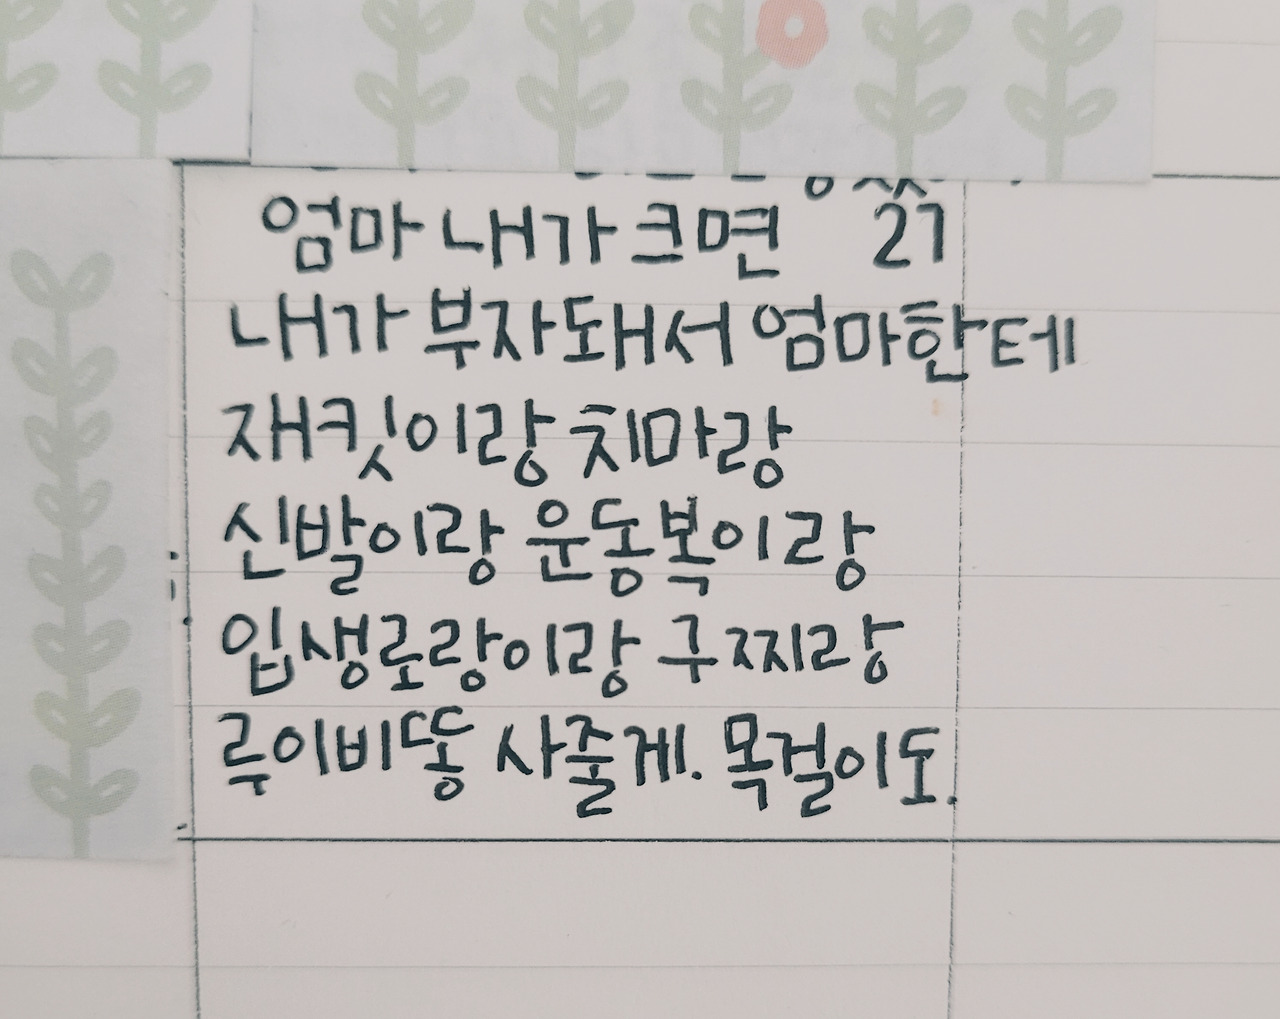 엄마 내가 크면 27
내가 부자돼서 엄마한테
재킷이랑 치마랑
신발이랑 운동복이랑
입생로랑이랑 구찌랑
루이비똥 사줄게. 목걸이도.